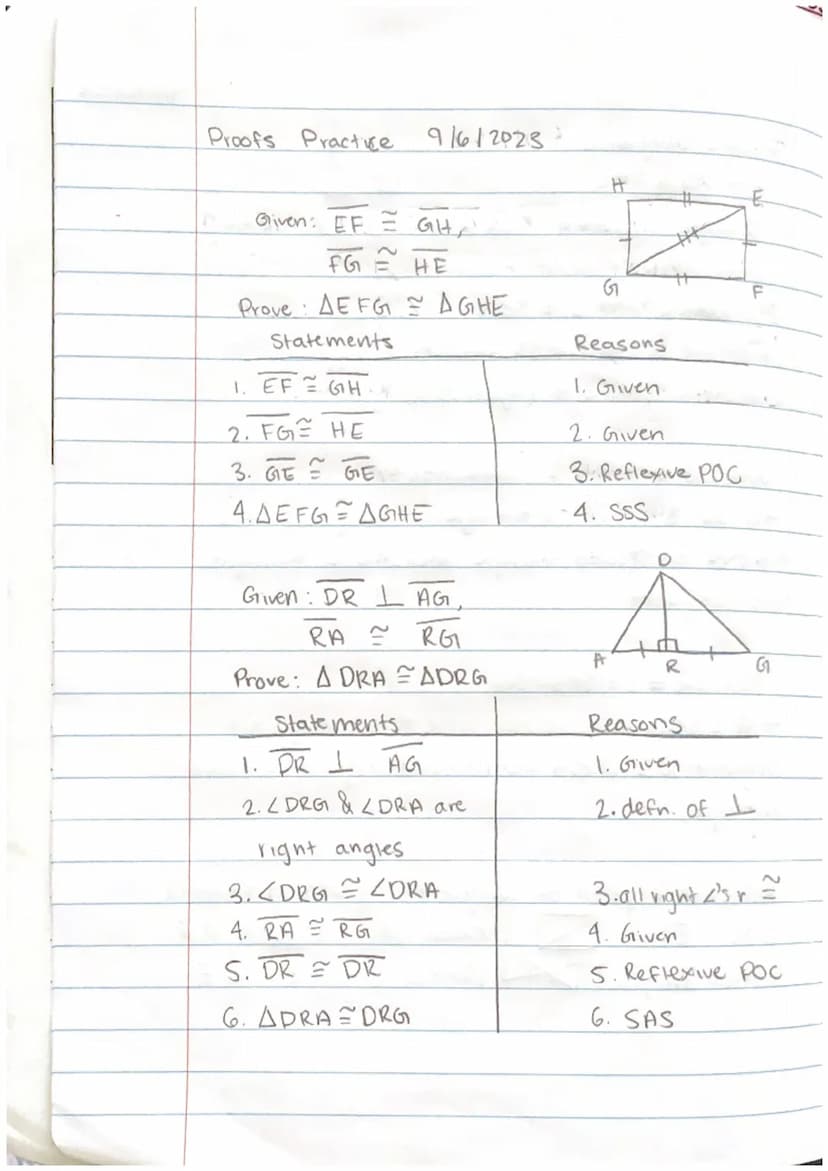 Proofs Practice 9/6/2023
Given: EF ≅ GH,
FG ≅ HE
Prove: ΔEFG ≅ ΔGHE
H
E
G
F
Statements Reasons
1. EF ≅ GH 1. Given
2. FG ≅ HE 2. Given
3. GE ≅ GE 3. Reflexive POC
4. ΔEFG ≅ ΔGHE 4. SSS
Given: DR ⊥ AG,
RA ≅ RG
Prove: Δ DRA ≅ ΔDRG
D
A
R
G
Statements Reasons
1. DR ⊥ AG 1. Given
2. ∠DRG & ∠DRA are 2. defn. of ⊥
right angles
3. ∠DRG ≅ ∠DRA 3. all right ∠'s r ≅
4. RA ≅ RG 4. Given
5. DR ≅ DR 5. Reflexive POC
6. ΔDRA ≅ DRG 6. SAS